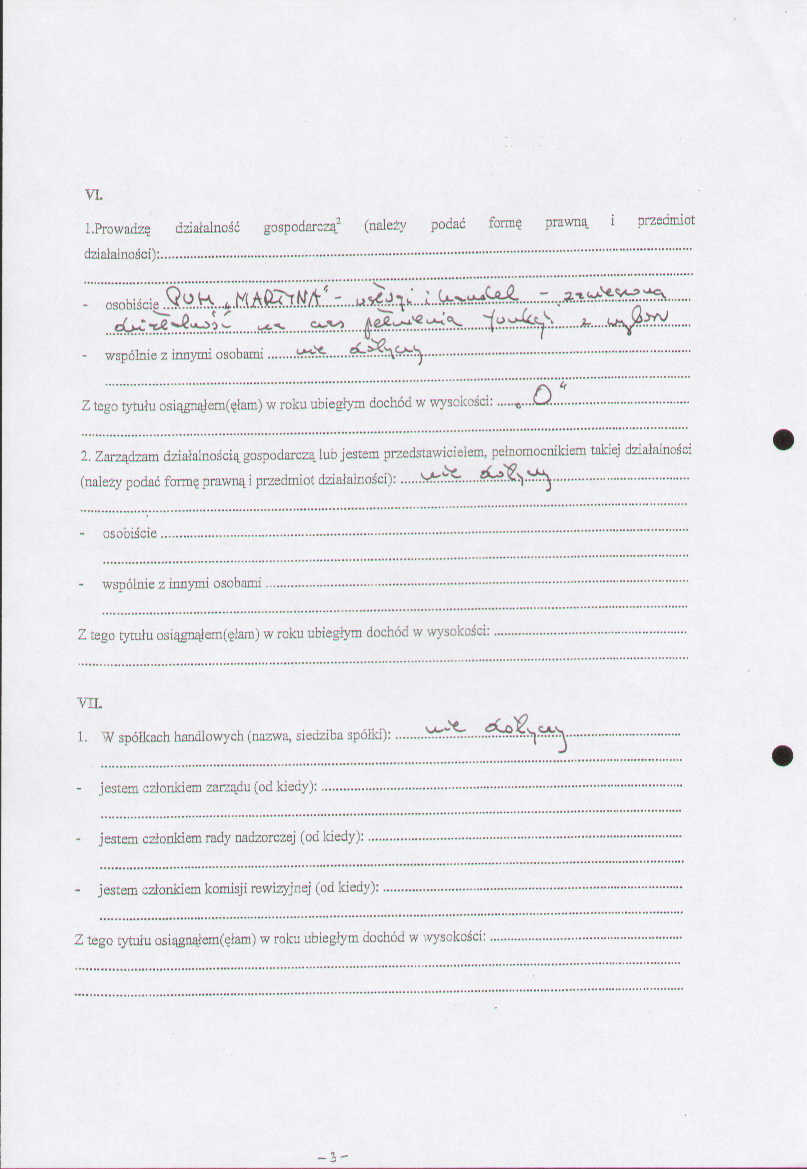 VI.
1.Prowadzę działalność gospodarczą² (należy podać formę prawną i przedmiot
działalności):
- osobiście PUH „MARTYNA" - usługi i handel - zawieszona
działalność na czas pełnienia funkcji z wyboru
- wspólnie z innymi osobami nie dotyczy
Z tego tytułu osiągnąłem(ęłam) w roku ubiegłym dochód w wysokości: „O"
2. Zarządzam działalnością gospodarczą lub jestem przedstawicielem, pełnomocnikiem takiej działalności
(należy podać formę prawną i przedmiot działalności): nie dotyczy
- osobiście
- wspólnie z innymi osobami
Z tego tytułu osiągnąłem(ęłam) w roku ubiegłym dochód w wysokości:
VII.
1. W spółkach handlowych (nazwa, siedziba spółki): nie dotyczy
- jestem członkiem zarządu (od kiedy):
- jestem członkiem rady nadzorczej (od kiedy):
- jestem członkiem komisji rewizyjnej (od kiedy):
Z tego tytułu osiągnąłem(ęłam) w roku ubiegłym dochód w wysokości:
- 3 -